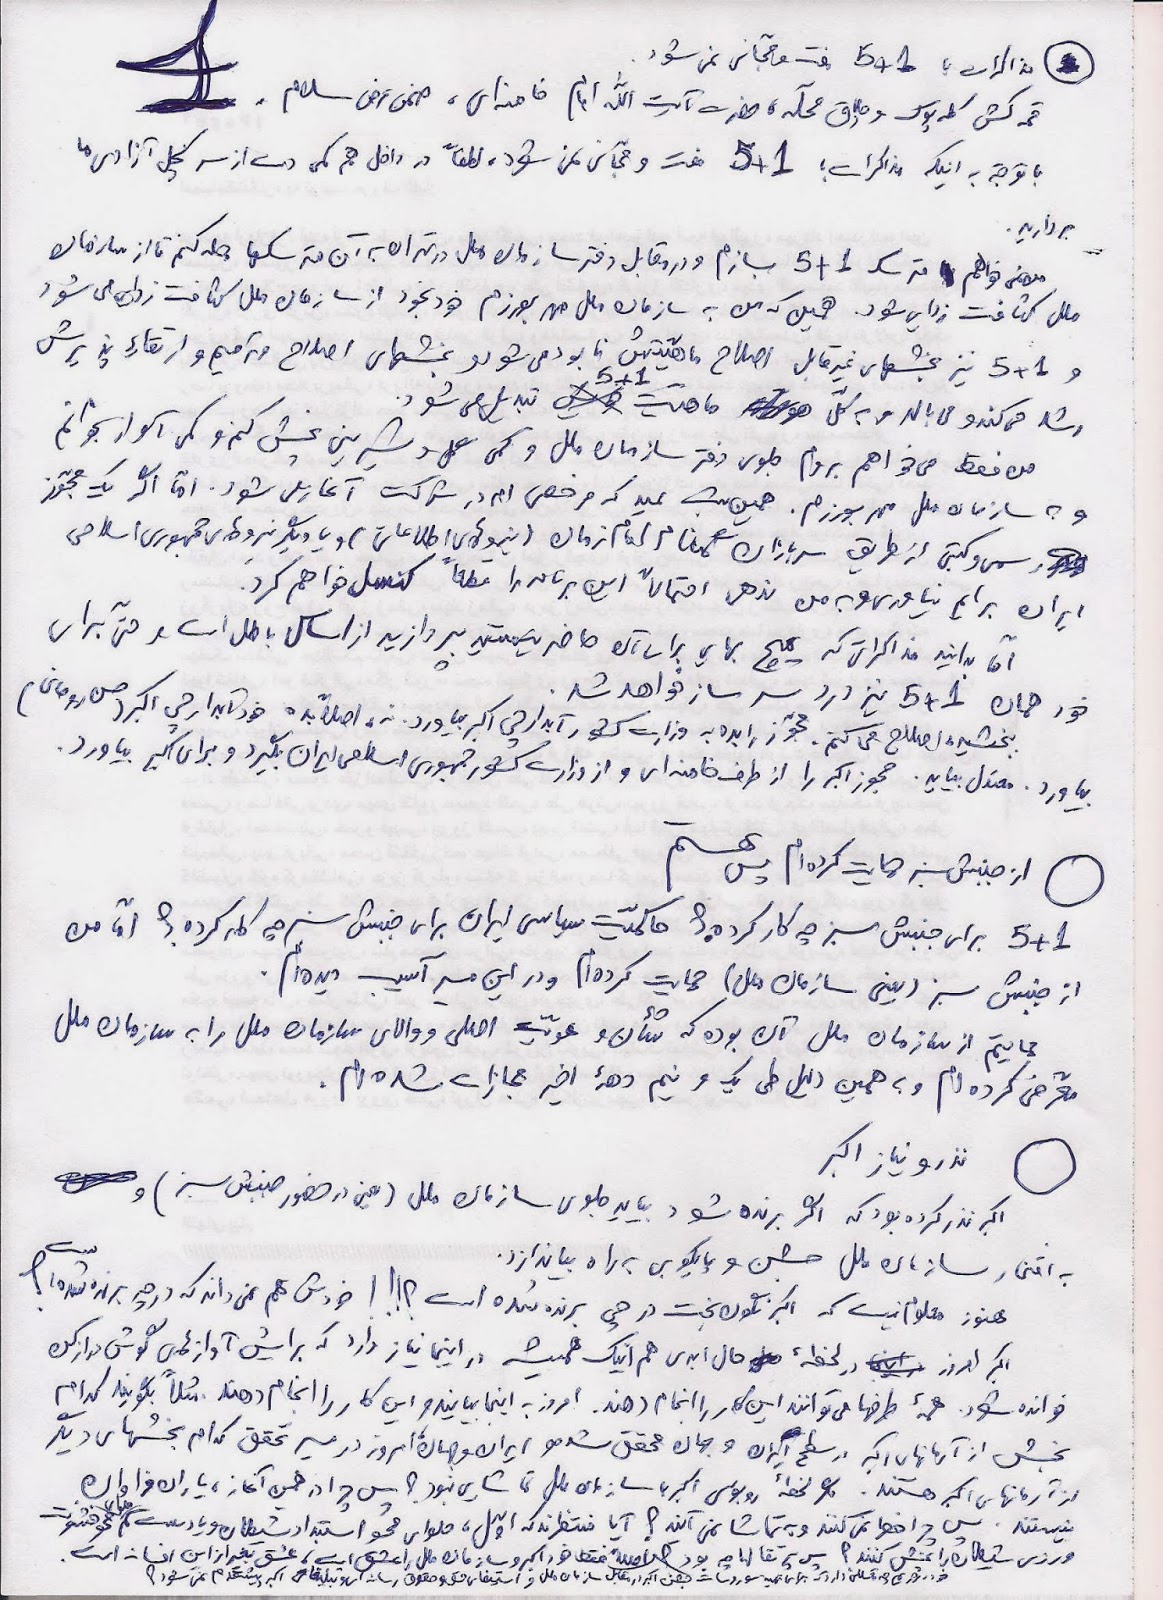 مذاکرات با 5+1 مفت و مجانی نمی شود.
1
قمه کش کله پوک و چلاق محله، حضرت آیت الله امام خامنه ای، ضمن عرض سلام.
با توجه به اینکه مذاکرات با 5+1 مفت و مجانی نمی شود، لطفاً در داخل هم کمی دست از سر کچل آزادی ما
بردارید.
من می خواهم مترسک 5+1 بسازم و در مقابل دفتر سازمان ملل در تهران به آن مترسکها حمله کنم تا از سازمان
ملل کثافت زدایی شود. همین که من به سازمان ملل مهر بورزم خودبخود از سازمان ملل کثافت زدایی می شود
و 5+1 نیز بخشهای غیر قابل اصلاح ماهیتش نابود می شود و بخشهای اصلاح و ترمیم و ارتقاء پذیرش
رشد می کند و می بالد و به کل ماهیت 5+1 تبدیل می شود.
من فقط می خواهم بروم جلوی دفتر سازمان ملل و کمی عسل و شیرینی پخش کنم و کمی آواز بخوانم
و به سازمان ملل مهر بورزم. همین شب عید که مرخصی ام در شرکت آغاز می شود. اما اگر یک مجوز
رسمی و کتبی از طریق سربازان گمنام امام زمان (نیروهای اطلاعاتی) و یا دیگر نیروهای جمهوری اسلامی
ایران برایم نیاوری و به من ندهی احتمالاً این برنامه را قطعاً کنسل خواهم کرد.
اما بدانید مذاکراتی که هیچ بهایی برای آن حاضر نیستید بپردازید از اساس باطل است و حتی برای
خود همان 5+1 نیز دردسر ساز خواهد شد.
ببخشید، اصلاح می کنم. مجوز را بده به وزارت کشور آبدارچی اکبر بیاورد. نه، اصلاً بده خود آبدارچی اکبر (حسن روحانی)
بیاورد. معتدل بیاید. مجوز اکبر را از طرف خامنه ای و از وزارت کشور جمهوری اسلامی ایران بگیرد و برای اکبر بیاورد.
از جنبش سبز حمایت کرده ام پس هستم
5+1 برای جنبش سبز چه کار کرده؟ حاکمیت سیاسی ایران برای جنبش سبز چه کار کرده؟ اما من
از جنبش سبز (یعنی سازمان ملل) حمایت کرده ام و در این مسیر آسیب دیده ام.
حمایتم از سازمان ملل آن بوده که شأن و هویت اصلی و والای سازمان ملل را به سازمان ملل
معرفی کرده ام و به همین دلیل طی یک و نیم دهۀ اخیر مجازات شده ام.
نذر و نیاز اکبر
اکبر نذر کرده بود که اگر برنده شود بیاید جلوی سازمان ملل (یعنی در حضور جنبش سبز) و
به افتخار سازمان ملل جشن و پایکوبی به راه بیاندازد.
هنوز معلوم نیست که اکبر نگون بخت در چی برنده شده است؟!!! خودش هم نمی داند که در چه برنده شده است؟
اکبر امروز در لحظۀ حال ابدی هم اینک همیشه در اینجا نیاز دارد که برایش آوازهای گوش دراز کن
خوانده شود. همۀ طرفها می توانند این کار را انجام دهند. امروز به اینجا بیایند و این کار را انجام دهند. مثلاً بگویند کدام
بخش از آرمانهای اکبر در سطح ایران و جهان محقق شده و ایران و جهان امروز در مسیر تحقق کدام بخشهای دیگر
از آرمانهای اکبر هستند. مگر لحظۀ روبوسی اکبر با سازمان ملل تماشایی نبود؟ پس چرا در همین آغاز، یاران فراوان
نیستند. پس چرا غوغا نمی کنند و به تماشا نمی آیند؟ آیا منتظرند که اول، حلوای محو استبداد شیطان و یا دست کم محو خشونت
ورزی شیطان را پخش کنند؟ پس پرتقالها چه بود؟ فقط خود اکبر و سازمان ملل را عشق است، عشق بعد از این افسانه است.